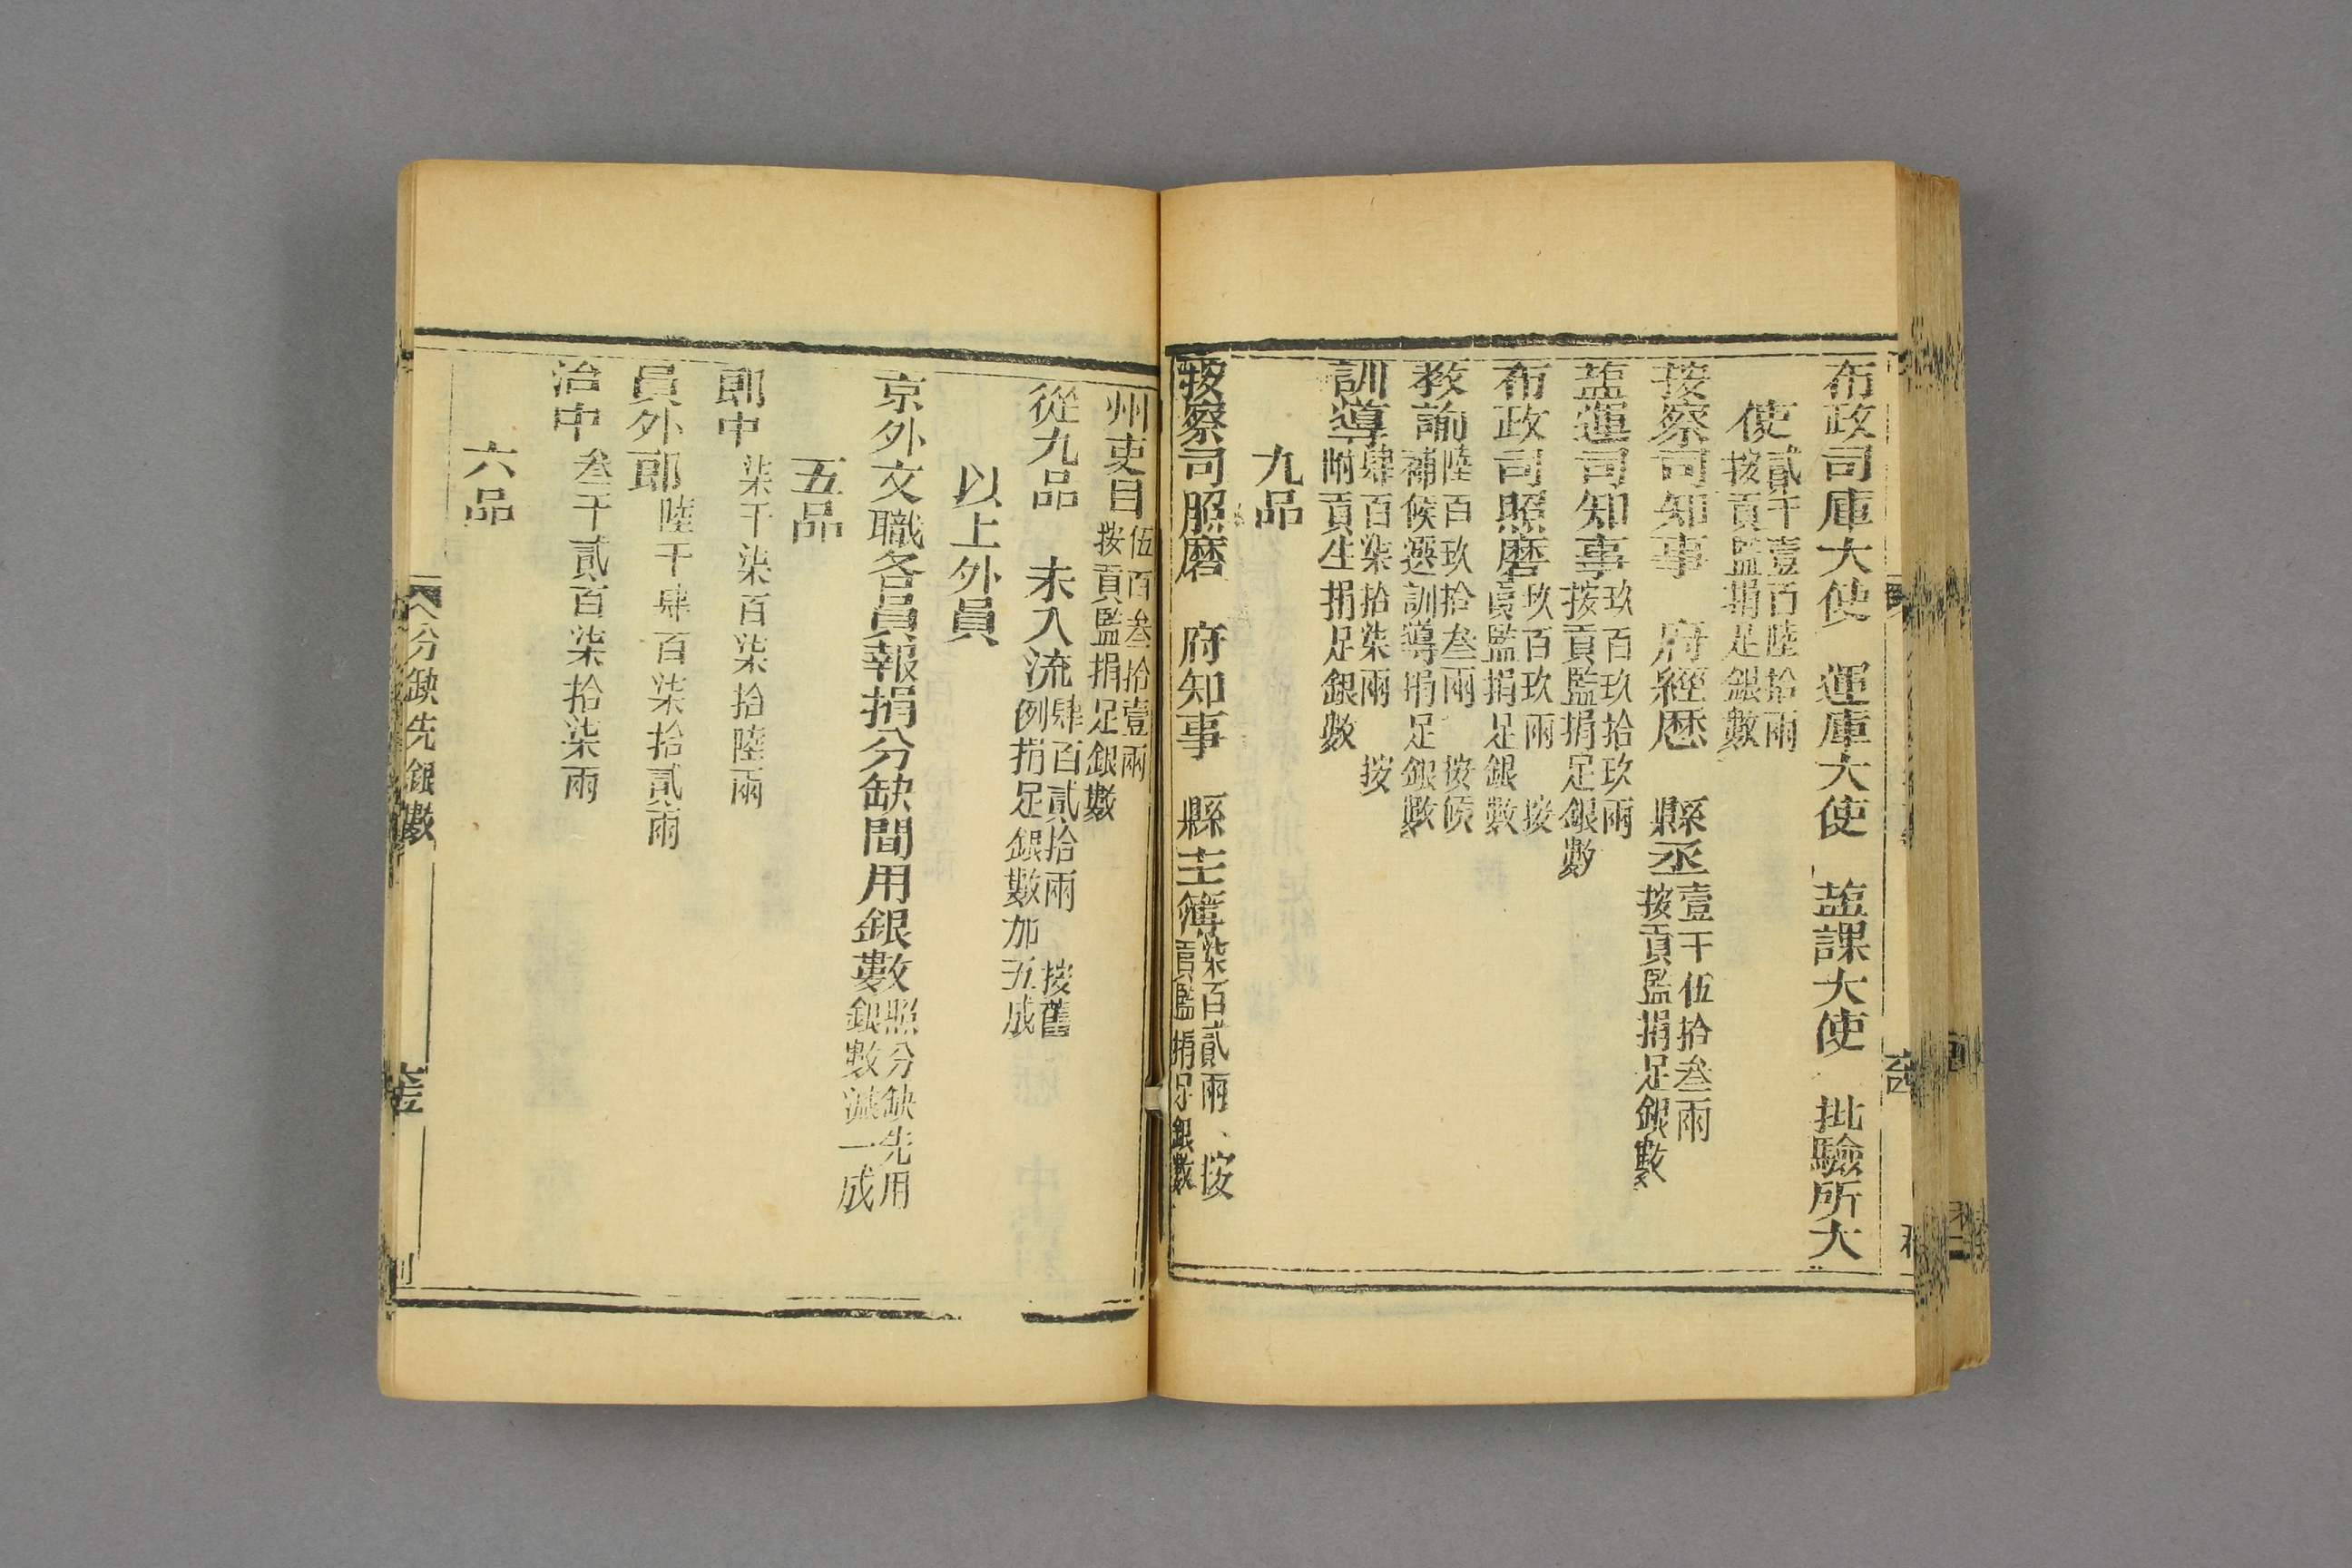 布政司庫大使 運庫大使 鹽課大使 批驗所大
使 貳千壹百陸拾兩 按貢監捐足銀數
按察司知事 府經歷 縣丞 壹千伍拾叁兩 按貢監捐足銀數
鹽運司知事 玖百玖拾玖兩 按貢監捐足銀數
布政司照磨 玖百玖兩 按貢監捐足銀數
教諭 陸百玖拾叁兩 按候補候選訓導捐足銀數
訓導 肆百柒拾柒兩 按附貢生捐足銀數
九品
按察司照磨 府知事 縣主簿 柒百貳兩 按貢監捐足銀數
州吏目 伍百叁拾壹兩 按貢監捐足銀數
從九品 未入流 肆百貳拾兩 按舊例捐足銀數加五成
以上外員
京外文職各員報捐分缺間用銀數 照分缺先用銀數減一成
五品
郎中 柒千柒百柒拾陸兩
員外郎 陸千肆百柒拾貳兩
治中 叁千貳百柒拾柒兩
六品
分缺先銀數